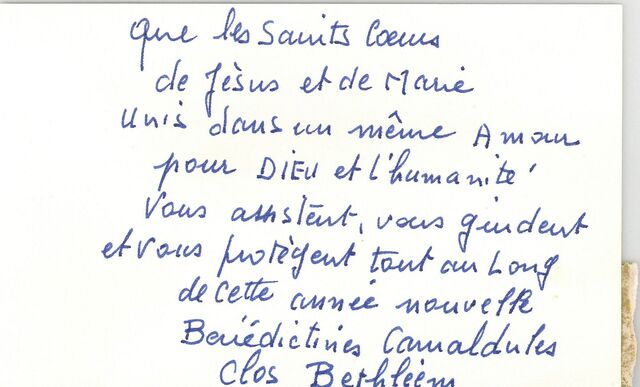 Que les Saints Cœurs
de Jésus et de Marie
Unis dans un même Amour
pour DIEU et l'humanité
Vous assistent, vous guident
et vous protègent tout au Long
de cette année nouvelle
Bénédictines Camaldules
Clos Bethléem